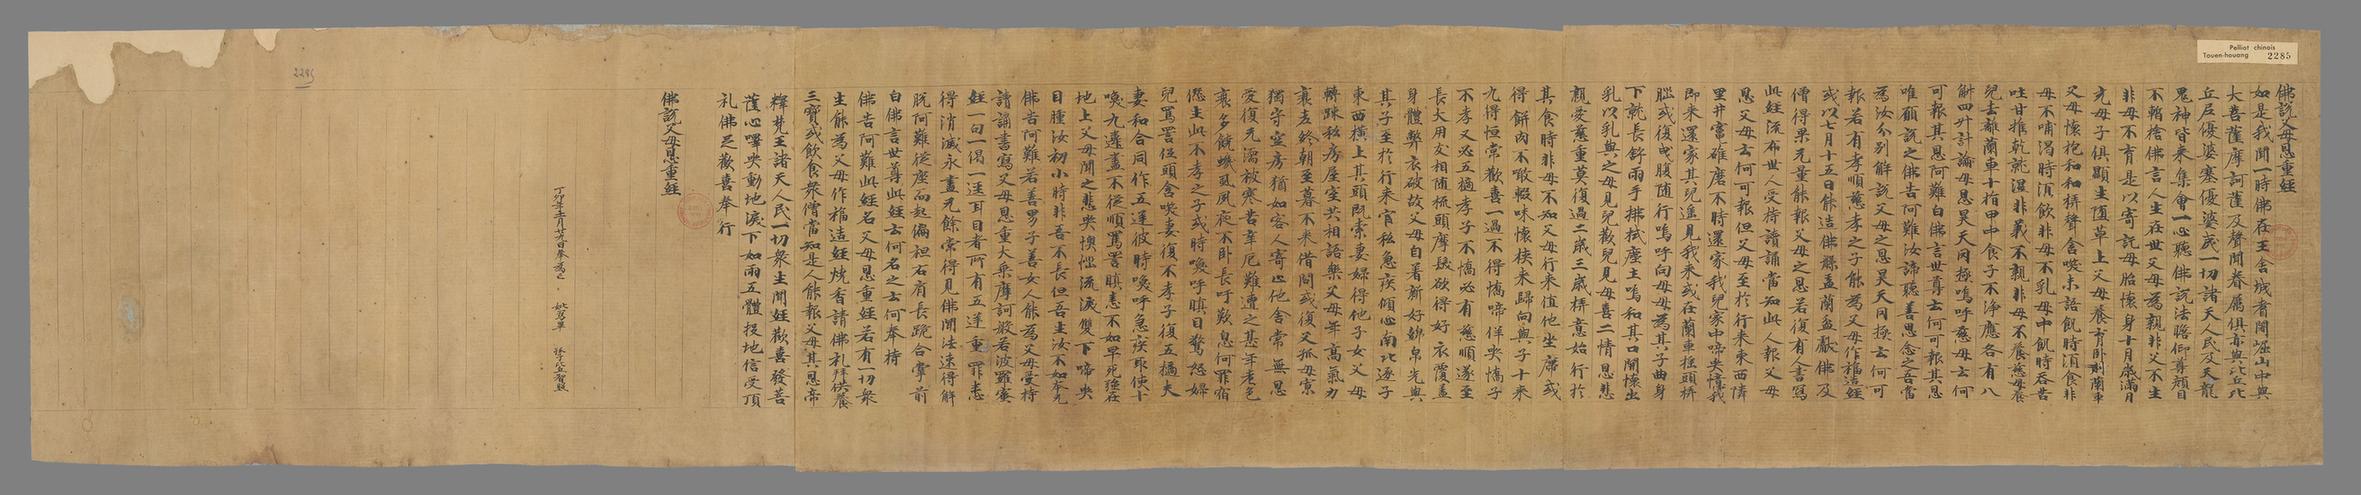 Pelliot chinois
Touen-houang 2285
佛說父母恩重經
如是我聞一時佛在王舍城耆闍崛山中與
大菩薩摩訶薩及聲聞眷屬俱亦與比丘比
丘尼優婆塞優婆夷一切諸天人民及天龍
鬼神皆来集會一心聽佛說法瞻仰尊顏目
不暫捨佛言人生在世父母為親非父不生
非母不育是以寄託母胎懷身十月歲滿月
充母子俱顯生墮草上父母養育卧則蘭車
父母懷抱和和弄聲含咲未語飢時須食非
母不哺渴時須飲非母不乳母中飢時吞苦
吐甘推乾就濕非義不親非母不養慈母養
兒去離蘭車十指甲中食子不淨應各有八
斛四升計論母恩昊天罔極嗚呼慈母云何
可報其恩阿難白佛言世尊云何可報其恩
唯願說之佛告阿難汝諦聽善思念之吾當
為汝分別解說父母之恩昊天罔極云何可
報若有孝順慈孝之子能為父母作福造經
或以七月十五日能造佛槃盂蘭盆獻佛及
僧得果无量能報父母之恩若復有人書寫
此經流布世人受持讀誦當知此人報父母
恩父母云何可報但父母至於行来東西隣
里井竈碓磨不時還家我兒家中啼哭憶我
即来還家其兒遥見我来或在蘭車揺頭弄
腦或復曳腹随行嗚呼向母母為其子曲身
下就長舒兩手拂拭塵土嗚和其口開懷出
乳以乳與之母見兒歡兒見母喜二情恩悲
親愛慈重莫復過二歲三歲弄意始行於
其食時非母不知父母行来值他坐席或
得餅肉不敢輟味懷挾来歸向與子十来
九得恒常歡喜一過不得憍啼佯哭憍子
不孝必有五擿孝子不憍必有慈順遂至
長大朋友相随梳頭摩髮欲得好衣覆蓋
身體弊衣破故父母自著新好綿帛先與
其子至於行来官私急疾傾心南北逐子
東西橫上其頭既索妻婦得他子女父母
轉踈私房屋室共相語樂父母年高氣力
衰老終朝至暮不来借問或復父孤母寡
獨守空房猶如客人寄止他舍常無恩
愛復无濡被寒苦辛厄難遭之甚年老色
衰多饒蟣虱夙夜不卧長吁歎息何罪宿
愆生此不孝之子或時喚呼瞋目驚怒婦
兒罵詈伍頭含咲妻復不孝子復五擿夫
妻和合同作五逆彼時喚呼急疾取使十
喚九違盡不從順罵詈瞋恚不如早死强在
地上父母聞之悲哭懊惱流淚雙下啼哭
目腫汝初小時非吾不長但吾生汝不如本无
佛告阿難若善男子善女人能為父母受持
讀誦書寫父母恩重大乘摩訶般若波羅蜜
經一句一偈一逕耳目者所有五逆重罪悉
得消滅永盡无餘常得見佛聞法速得解
脫阿難從座而起偏袒右肩長跪合掌前
白佛言世尊此經云何名之云何奉持
佛告阿難此經名父母恩重經若有一切衆
生能為父母作福造經燒香請佛礼拜供養
三寶或飲食衆僧當知是人能報父母其恩帝
釋梵王諸天人民一切衆生聞經歡喜發菩
薩心嘷哭動地淚下如雨五體投地信受頂
礼佛足歡喜奉行
佛說父母恩重經
丁卯年十一月廿九日奉為亡妣寫畢 孫子宜智照
2285